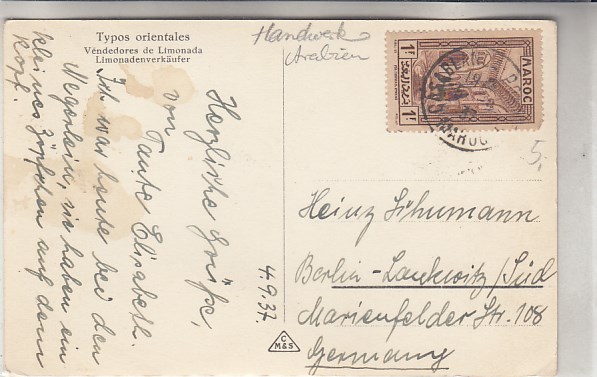 Typos orientales
Véndedores de Limonada
Limonadenverkäufer
Handwerk
Arabien
MAROC
1F
1F
Herzliche Grüße,
von
Tante Elisabeth.
Ich war heute bei den
Negerlein, sie haben ein
kleines Zöpfchen auf dem
Kopf.
4.9.37.
C
M&S
Heinz Schumann
Berlin-Lankwitz/Süd
Marienfelder Str. 108
Germany
5,